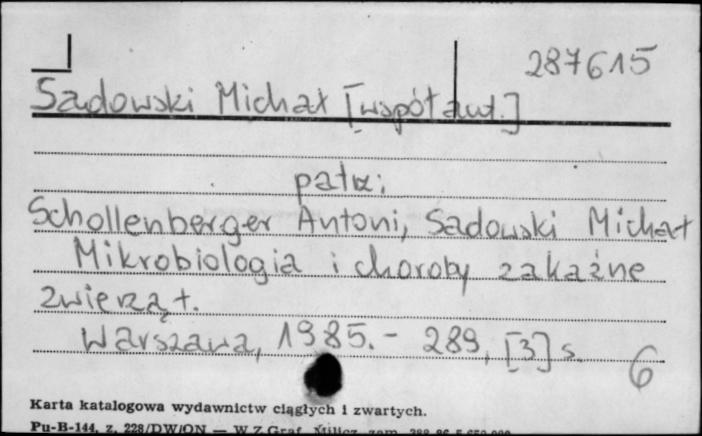 287615
Sadowski Michał [współaut.]
patrz:
Schollenberger Antoni, Sadowski Michał
Mikrobiologia i choroby zakaźne
zwierząt.
Warszawa, 1985. - 289, [3] s.
6
Karta katalogowa wydawnictw ciągłych i zwartych.
Pu-B-144, z. 228/DW/ON — W.Z.Graf. Milicz, zam.